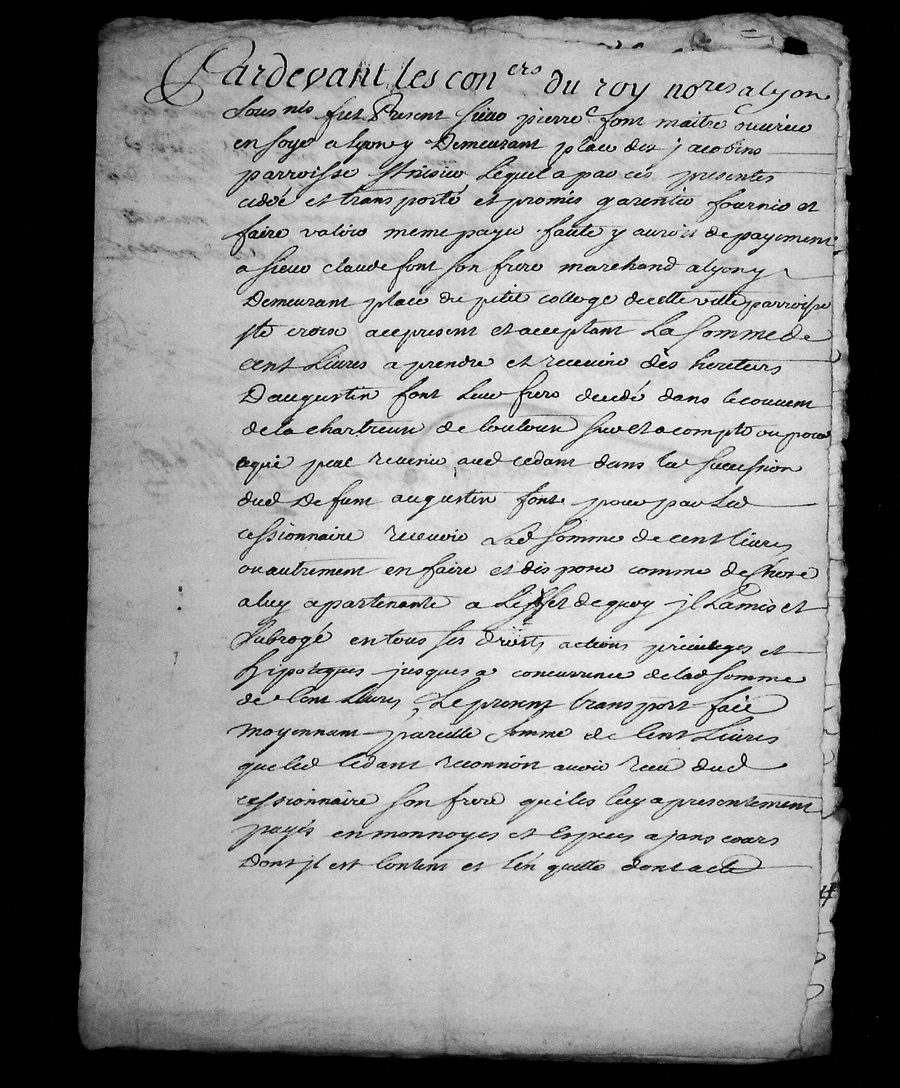 Pardevant les con.ers du roy no.res a lyon
sous.nés fut Present sieur pierre font maitre ouvrier
en soye a lyon y Demeurant place des jacobins
parroisse st nisier Lequel a par ces presentes
cedé et transporté et promis garentir fournir et
faire valoir meme payer faute y auroit de payement
a sieur claude font son frere marchand a lyon y
Demeurant place du petit college de cette ville parroisse
ste croix acepresent et acceptant La somme de
cent Livres a prendre et recevoir des heretiers
D'augustin font leur frere decedé dans le couvent
de la chartreuse de
ce qui peut revenir aud cedant dans la succession
dud Defunt augustin font pour par Led
cessionnaire recevoir Lad somme de cent livres
ou autrement en faire et disposer comme de chose
a luy apartenante a L'effet de quoy jl L'a mis et
subrogé en tous ses droits actions privileges et
hipoteques jusques a concurrence de lad somme
de Cent Livres, Le present transport fait
moyennant pareille somme de Cent Livres
que led Cedant reconnoit avoir receu dud
cessionnaire son frere qui les luy a presentement
payés en monnoyes et Especes ajans cours
Dont jl est Content et L'en quitte dont acte